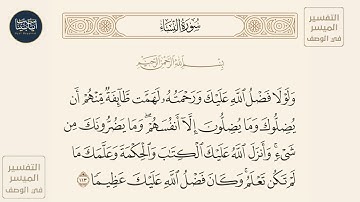 سُورَةُ النِّسَاءِ
التفسير
الميسر
في الوصف
بِسْمِ اللَّهِ الرَّحْمَٰنِ الرَّحِيمِ
وَلَوْلَا فَضْلُ اللَّهِ عَلَيْكَ وَرَحْمَتُهُۥ لَهَمَّت طَّآئِفَةٌ مِّنْهُمْ أَن
يُضِلُّوكَ وَمَا يُضِلُّونَ إِلَّآ أَنفُسَهُمْ ۖ وَمَا يَضُرُّونَكَ مِن
شَىْءٍ ۚ وَأَنزَلَ اللَّهُ عَلَيْكَ الْكِتَٰبَ وَالْحِكْمَةَ وَعَلَّمَكَ مَا
لَمْ تَكُن تَعْلَمُ ۚ وَكَانَ فَضْلُ اللَّهِ عَلَيْكَ عَظِيمًا ١١٣
التفسير
الميسر
في الوصف